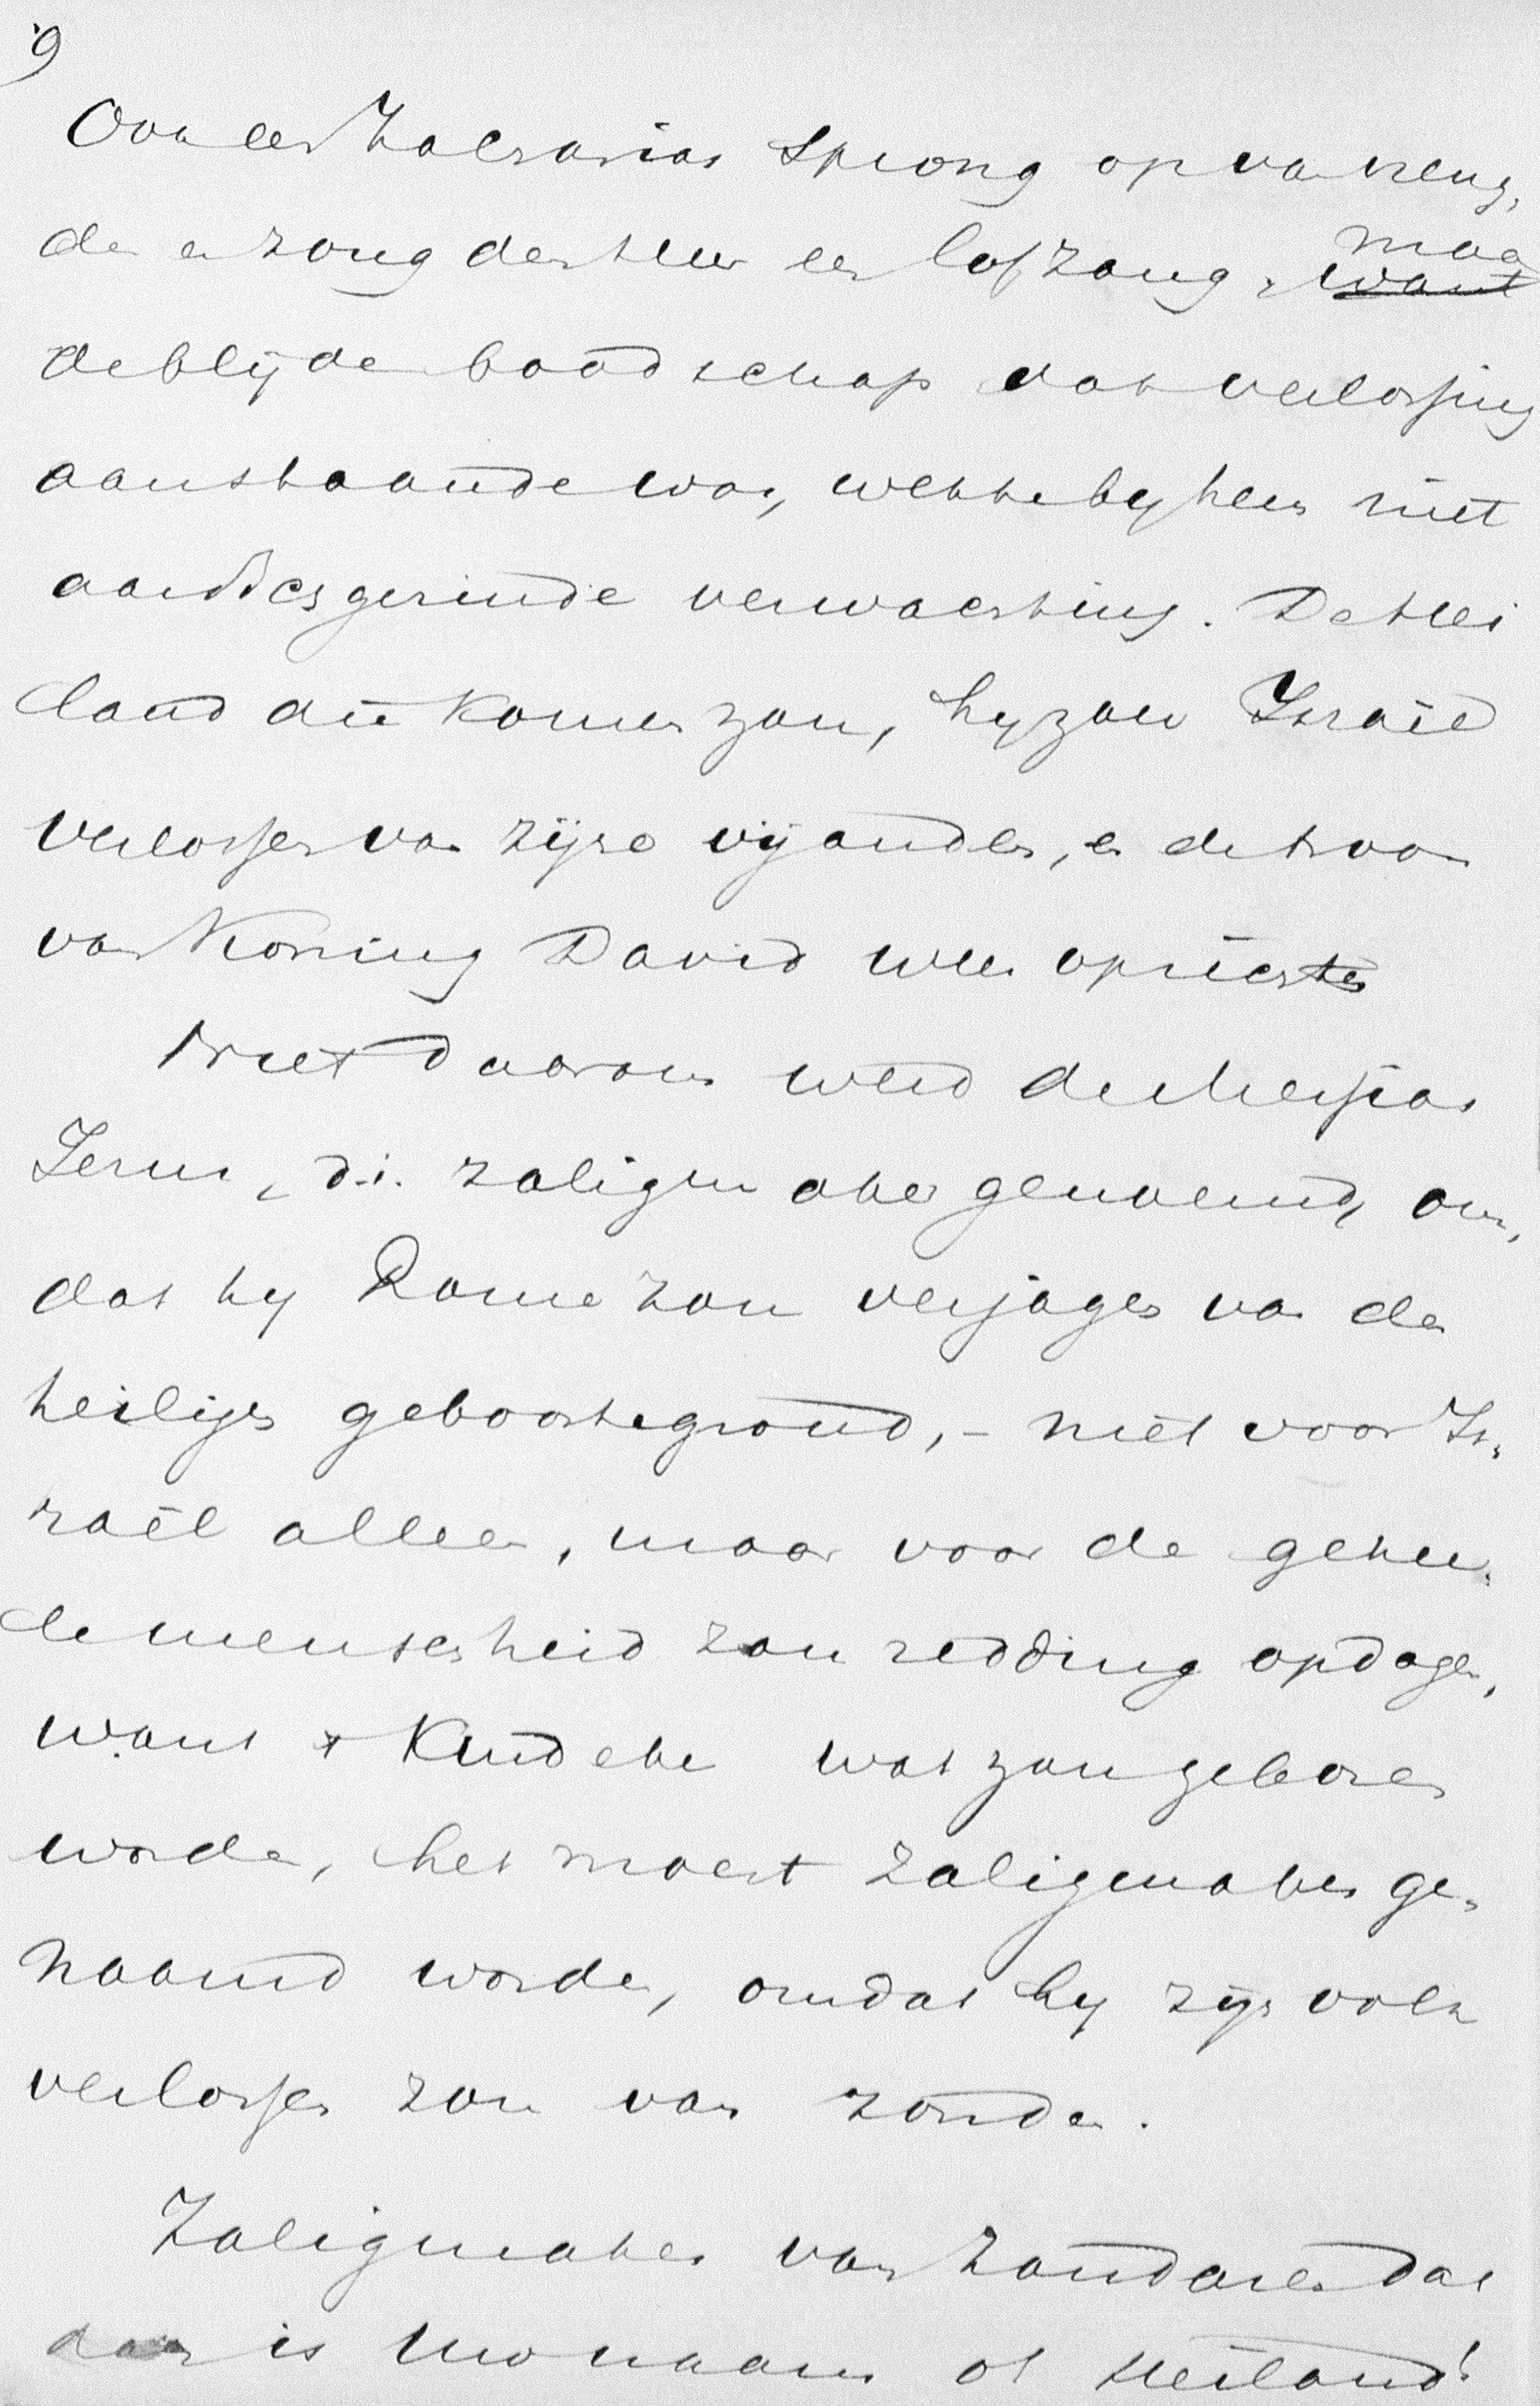 9
Ook een Zacharias sprong op van vreug,
de en zong den Heer een lofzang, ~~want~~ maar
de blijde boodschap dat verlossing
aanstaande was, wekte by heen niet
aardsgezinde verwachting. De Hei
land die komen zou, hy zou Israël
verlossen van zijne vijanden, en de troon
van Koning David weer oprichten
Niet daarom werd de Messias
Jezus, d.i. zaligmaker genoemd, om,
dat hy Rome zou verjagen van den
heiligen geboortegrond, – niet voor Is,
raël alleen, maar voor de gehee,
le menschheid zou redding opdagen,
want 't Kindeke wat zou geboren
worden, het moest Zaligmaker ge,
naamd worden, omdat hy zijn volk
verlossen zou van zonden.
Zaligmaker van zondaren dat
dan is Uw naam o Heiland!